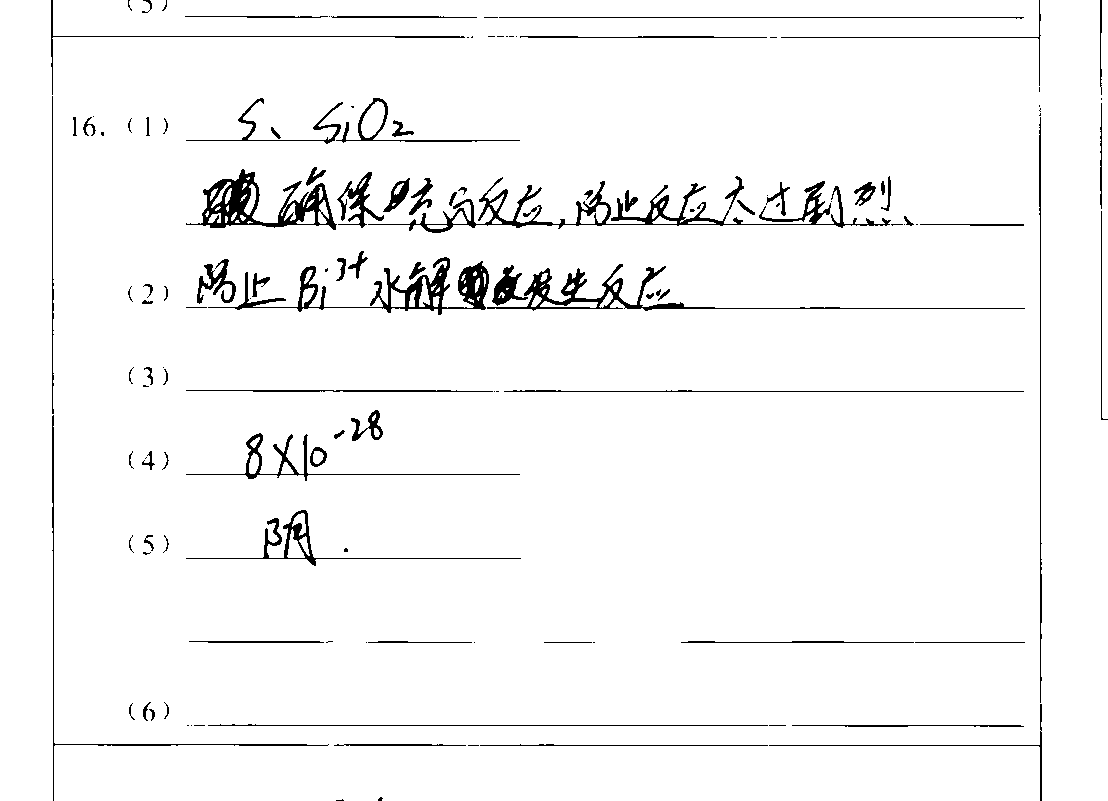 (5)
16. (1) S、SiO₂
确保充分反应,防止反应太过剧烈、
(2) 防止Bi³⁺水解发生反应
(3)
(4) 8×10⁻²⁸
(5) 阴.
(6)